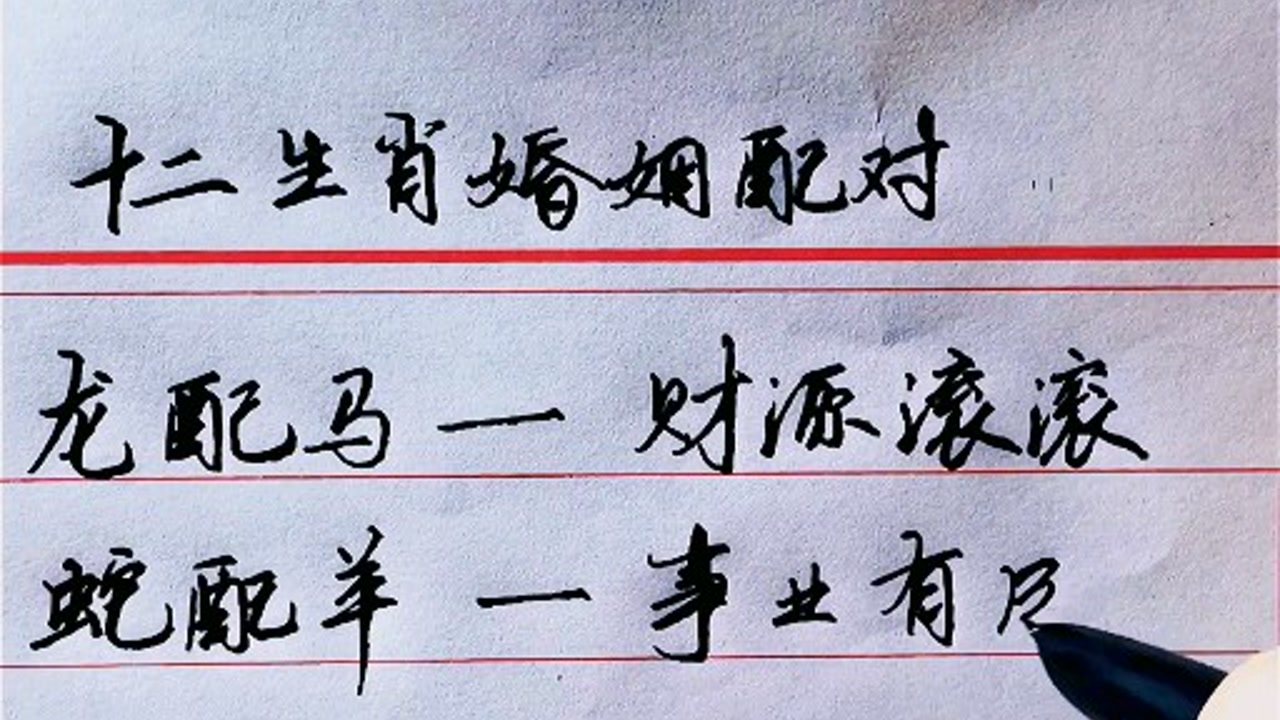 十二生肖婚姻配对
龙配马一财源滚滚
蛇配羊一事业有